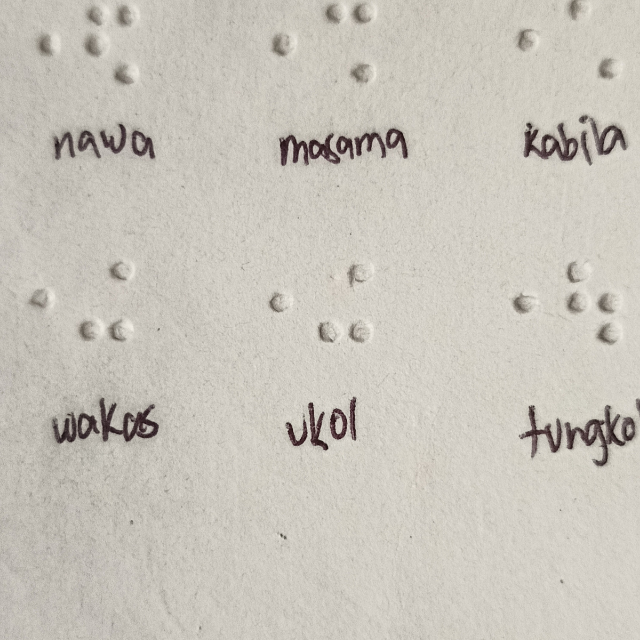 nawa masama kabila
wakas ukol tungkol